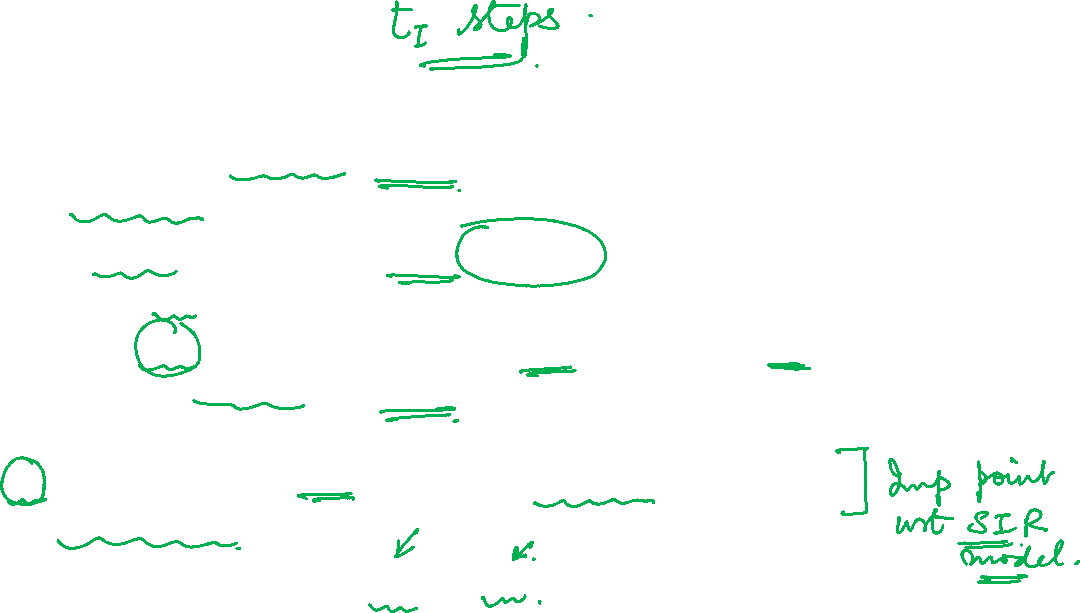 t_I steps.
Imp point
wrt SIR
model.